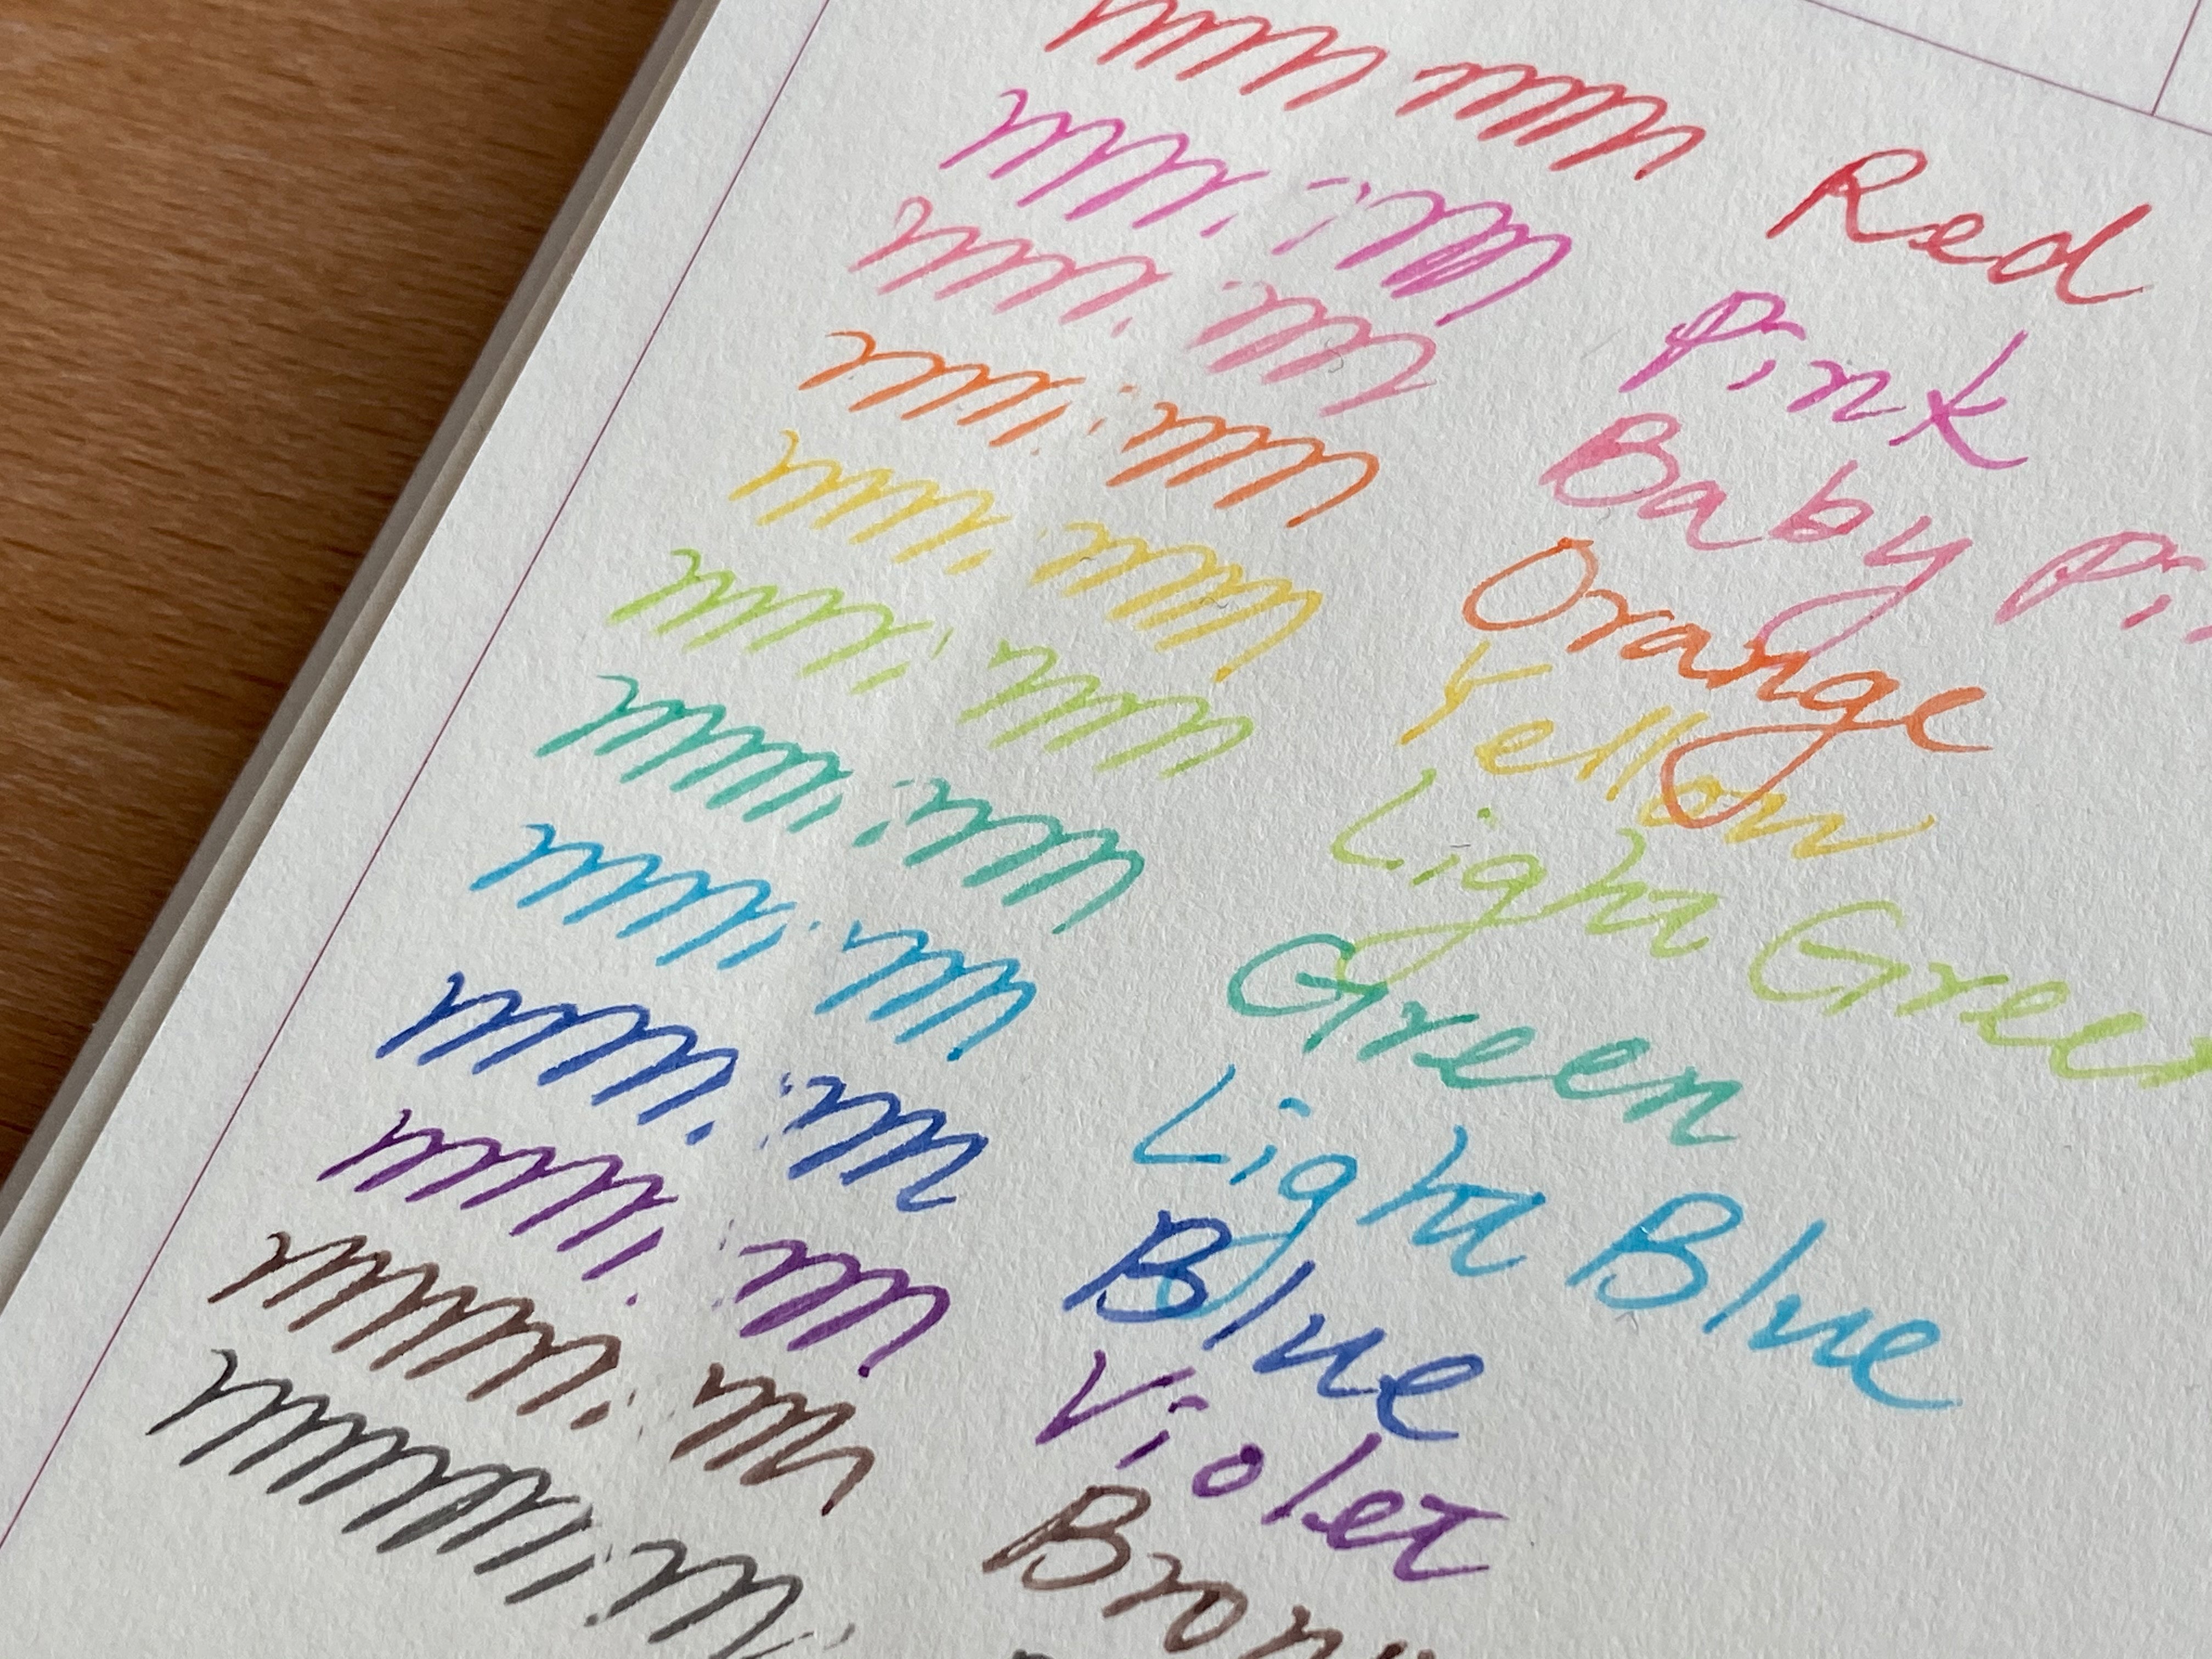 Red
Pink
Baby Pi
Orange
Yellow
Light Green
Green
Light Blue
Blue
Violet
Brown